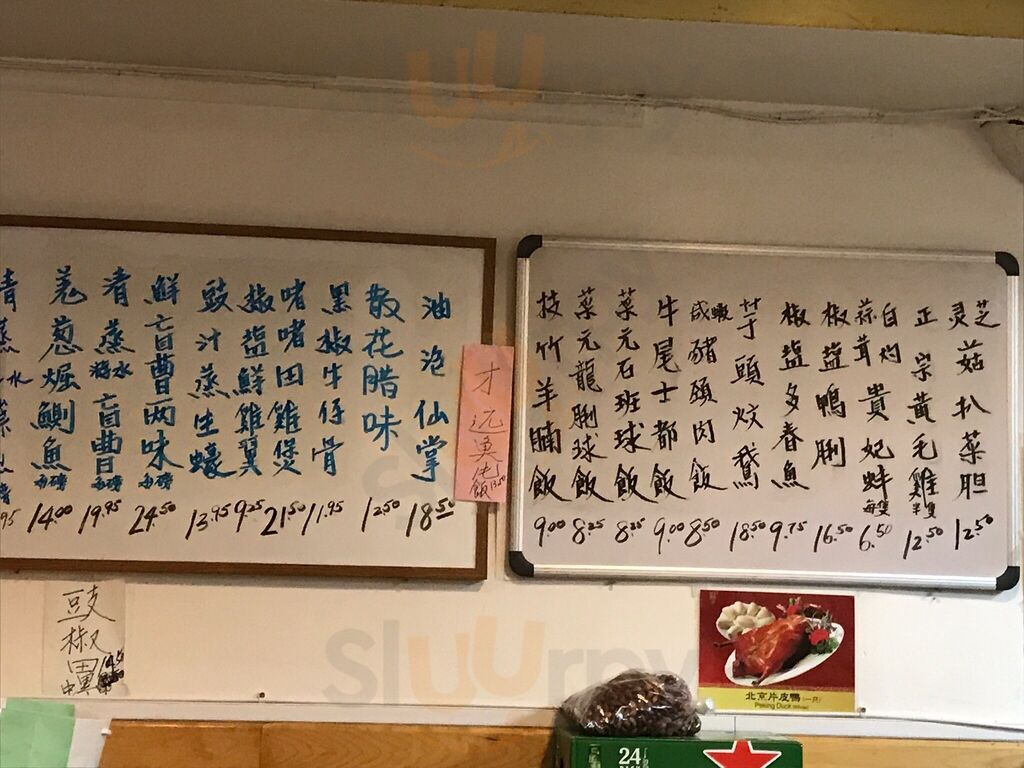 羌葱焗鰂魚每磅
14.00
清蒸游水盲曹每磅
19.95
鮮盲曹兩味每磅
24.50
豉汁蒸生蠔
13.95
椒鹽鮮雞翼
9.25
啫啫田雞煲
21.50
黑椒牛仔骨
11.95
散花腊味
12.50
油泡仙掌
18.50
飯
13.50
枝竹羊腩飯
9.00
菜元龍脷球飯
8.25
菜元石班球飯
8.25
牛尾士都飯
9.00
咸蝦豬頸肉飯
8.50
芋頭炆鵝
18.50
椒鹽多春魚
9.75
椒鹽鴨脷
16.50
蒜茸白灼貴妃蚌每隻
6.50
正宗黃毛雞半隻
12.50
灵芝菇扒菜胆
12.50
豉椒
北京片皮鴨(一只)
Peking Duck (Whole)
24
PACK